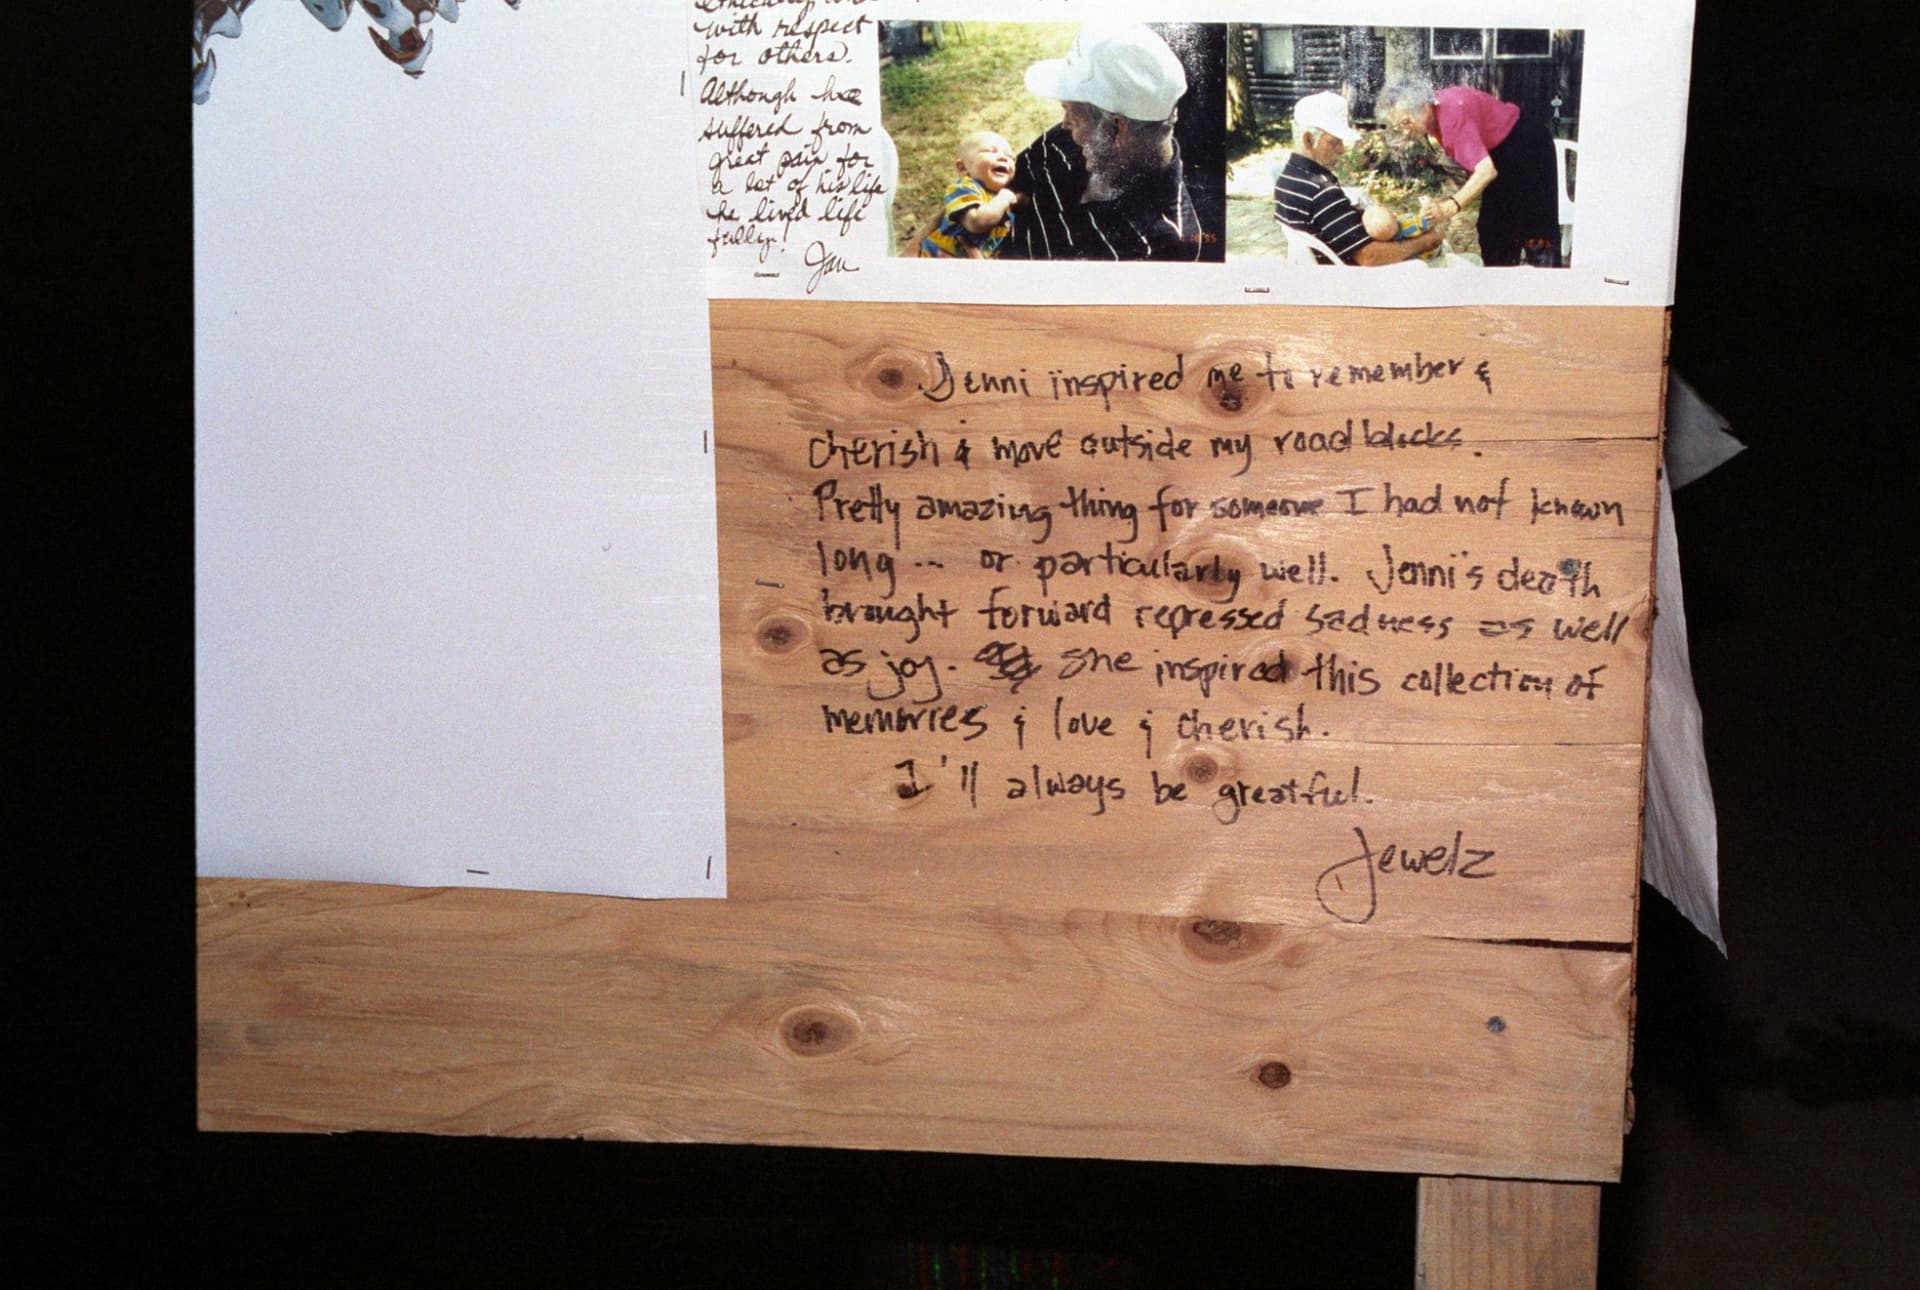 with respect
for others.
Although he
suffered from
great pain for
a lot of his life
he lived life
fully!
Jan
Jenni inspired me to remember &
cherish & move outside my road blocks.
Pretty amazing thing for someone I had not known
long... or particularly well. Jenni's death
brought forward repressed sadness as well
as joy. She inspired this collection of
memories & love & cherish.
I'll always be greatful.
Jewelz